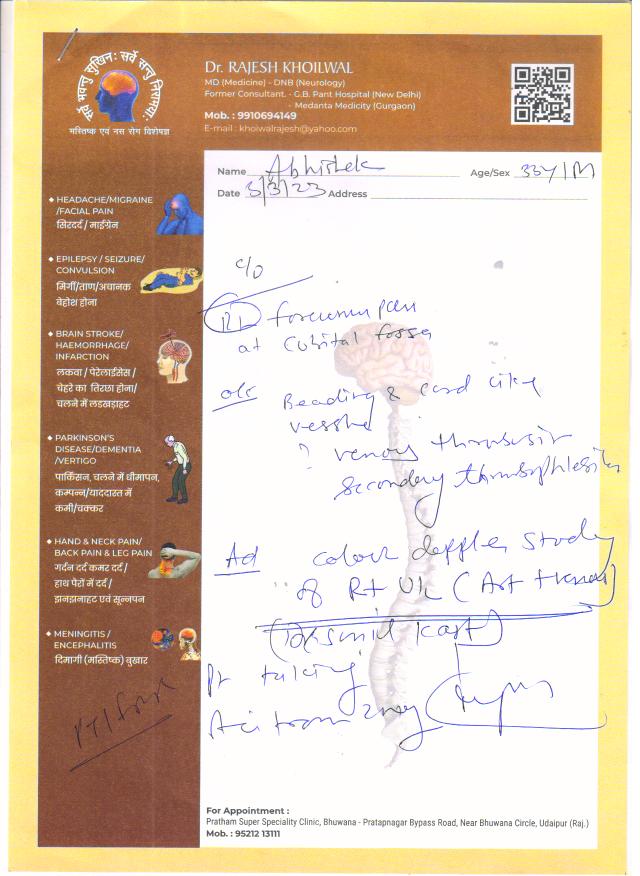 सर्वे भवन्तु सुखिनः सर्वे सन्तु निरामयाः
मस्तिष्क एवं नस रोग विशेषज्ञ
Dr. RAJESH KHOILWAL
MD (Medicine) - DNB (Neurology)
Former Consultant. - G.B. Pant Hospital (New Delhi)
- Medanta Medicity (Gurgaon)
Mob. : 9910694149
E-mail : khoiwalrajesh@yahoo.com
Name Abhishek Age/Sex 33Y/M
Date 3/3/23 Address
HEADACHE/MIGRAINE
/FACIAL PAIN
सिरदर्द / माईग्रेन
EPILEPSY / SEIZURE/
CONVULSION
मिर्गी/ताण/अचानक
बेहोश होना
BRAIN STROKE/
HAEMORRHAGE/
INFARCTION
लकवा / पेरेलाईसेस /
चेहरे का तिरछा होना/
चलने में लडखड़ाहट
PARKINSON'S
DISEASE/DEMENTIA
/VERTIGO
पार्किंसन, चलने में धीमापन,
कम्पन्न/याददारत में
कमी/चक्कर
HAND & NECK PAIN/
BACK PAIN & LEG PAIN
गर्दन दर्द कमर दर्द /
हाथ पेरों में दर्द /
झनझनाहट एवं सून्नपन
MENINGITIS /
ENCEPHALITIS
दिमागी (मस्तिष्क) बुखार
c/o
Rt forearm pain
at Cubital fossa
o/e Beading & cord like
vessel
? venous thrombosis
Secondary thrombophlebitis
Ad colour doppler study
of Rt UL
Pt taking
Acitrom 2mg
For Appointment :
Pratham Super Speciality Clinic, Bhuwana - Pratapnagar Bypass Road, Near Bhuwana Circle, Udaipur (Raj.)
Mob. : 95212 13111